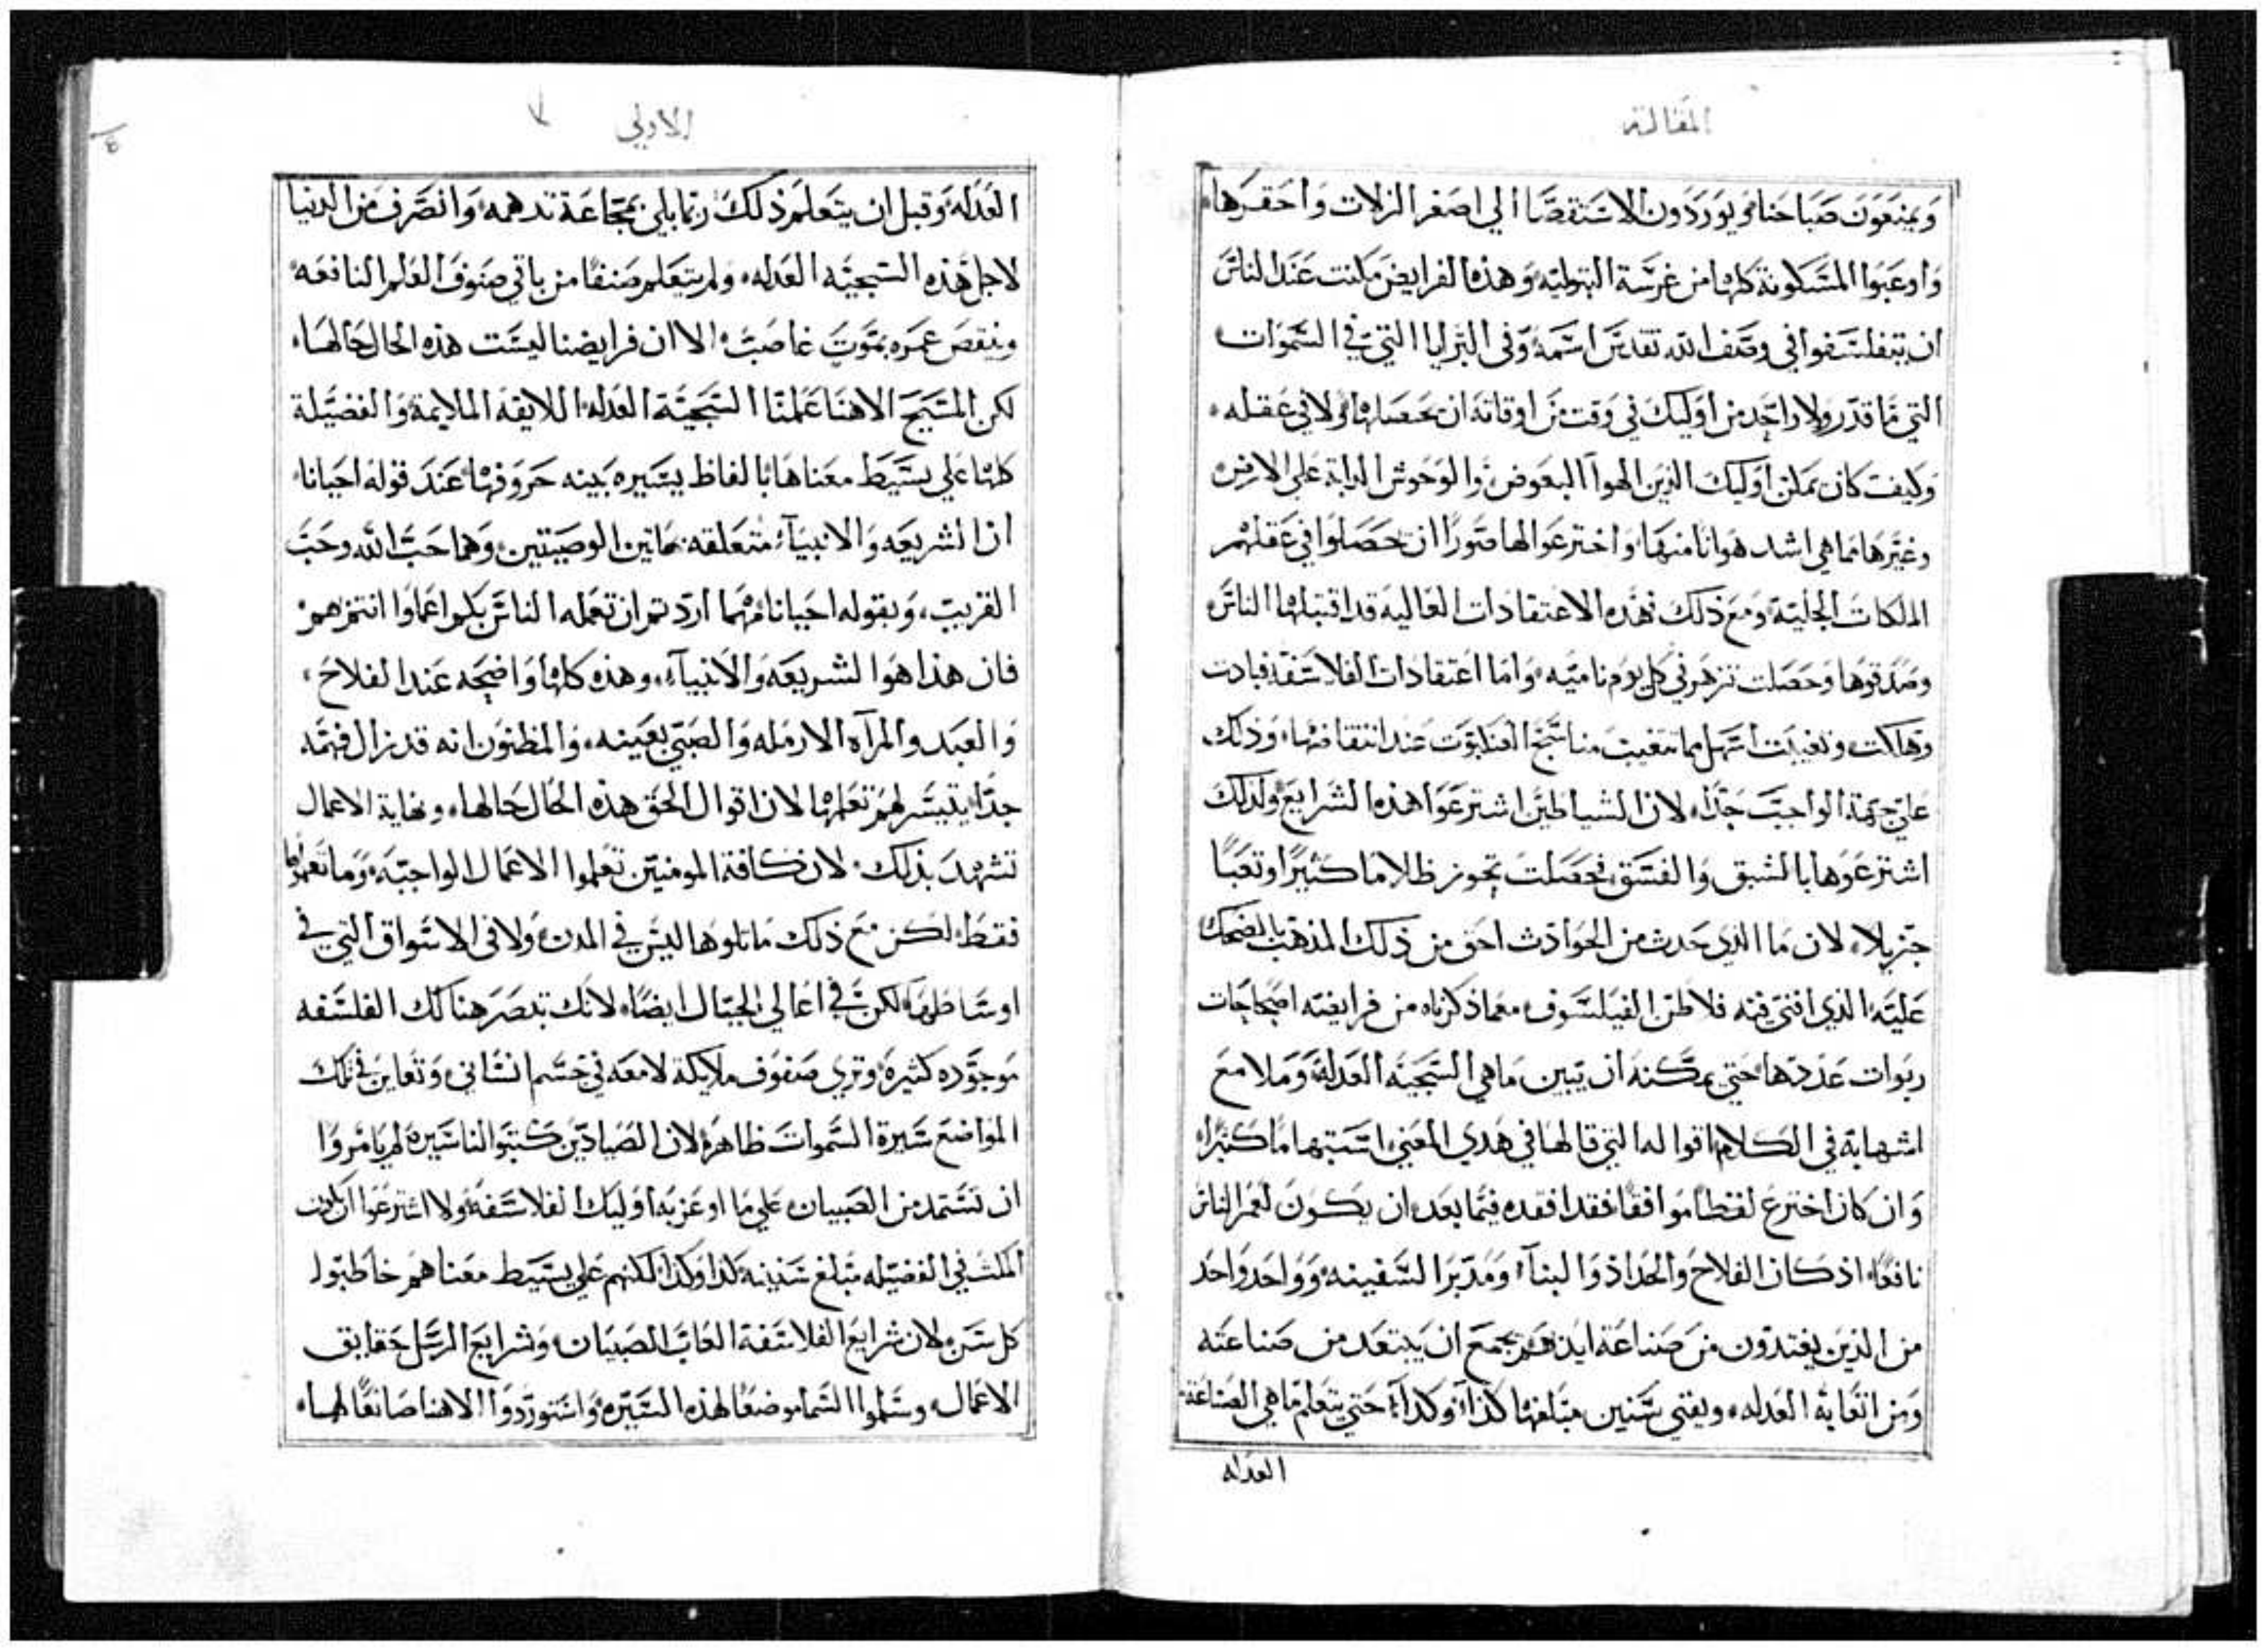 المقالة
ويمنعون صباحنا ويوردون الاستقصا الي اصغر الزلات واحقرها
واوعبوا المسكونة كلها من غرسة البتولية وهذه الفرايض مكنت عند الناس
ان يتفلسفوا في وصف الله تقدس اسمه وفي البرايا التي في السموات
التي ما قدر ولا واحد من اوليك في وقت من اوقاته ان يحصلها ولا في عقله
وكيف كان يمكن اوليك الذين الهوا البعوض والوحوش الدابة علي الارض
وغيرها مما هي اشد هوانا منها واخترعوا لها صورا ان حصلوا في عقلهم
الملكات الجلية ومع ذلك فهذه الاعتقادات العالية قد اقتبلها الناس
وصدقوها وحصلت تزهر في كل يوم نامية واما اعتقادات الفلاسفة فبادت
وهلكت وتغيبت اسهل مما تتغيب مناسج العنكبوت عند انتقاضها وذلك
علي جهة الواجب جدا لان الشياطين اشترعوا هذه الشرايع ولذلك
اشترعوها بالشبق والفسق فحصلت تحوز ظلاما كثيرا وتعبا
جزيلا لان ما الذي حدث من الحوادث احق من ذلك المذهب بالضحك
عليه الذي افني فيه فلاطن الفيلسوف معما ذكرناه من فرايضه اصحاحات
ربوات عددها حتي يمكنه ان يبين ما هي السجية العدلة وملا مع
اشهابه في الكلام اقواله التي قالها في هدي المعني
وان كان اخترع لفظا موافقا فقد افقده فيما بعد ان يكون لعمر الناس
نافعا اذ كان الفلاح والحداد والبنا ومدبر السفينه وواحد واحد
من الذين يغتذون من صناعة ايديهم يجمع ان يبتعد من صناعته
ومن اتعابه العدله ويفني سنين مبلغها كذا وكذا حتي يتعلم ما هي الصناعة
العدله
الاولي
العدله وقبل ان يتعلم ذلك ربما بلي بمجاعة تدهمه وانصرف من الدنيا
لاجل هذه السجيه العدله ولم يتعلم صنفا من باقي صنوف العلم النافعه
وينقص عمره بموت غاصب الا ان فرايضنا ليست هذه الحال حالها
لكن المسيح الاهنا علمنا السجية العدله اللايقة الملايمة والفضيلة
كلها علي بسيط معناها بالفاظ يسيره بينه حروفها عند قوله احيانا
ان الشريعه والانبيآء متعلقه بهاتين الوصيتين وهما حب الله وحب
القريب، وبقوله احيانا مهما اردتم ان تعمله الناس بكم اعملوا انتم بهم
فان هذا هو الشريعه والانبيآء، وهذه كلها واضحه عند الفلاح
والعبد والمرآه الارمله والصبي بعينه، والمظنون انه قد نزل فهمه
جدا يتيسر لهم تعلمها لان اقوال الحق هذه الحال حالها، ونهاية الاعمال
تشهد بذلك لان كافة المومنين تعلموا الاعمال الواجبه وما تعلموها
فقط لكن مع ذلك ما تلوها ليس في المدن ولا في الاسواق التي في
اوساطها لكن في اعالي الجبال ايضا لانك تبصر هنالك الفلسفه
موجوده كثيرة وتري صفوف ملايكة لامعه في جسم انساني وتعاين في تلك
المواضع سيرة السموات ظاهرة لان الصيادين كتبوا لنا سيرة لم يامروا
ان نستمد من الصبيان علي ما اوعز به اوليك الفلاسفة ولا اشترعوا
المكث في الفضيله مبلغ سنينه كذا وكذا لكنهم علي بسيط معناهم خاطبوا
كل سن لان شرايع الفلاسفة العاب الصبيان وشرايع الرسل حقايق
الاعمال وسلموا السما موضعا لهذه السيره واستوردوا الاهنا صانعا لها